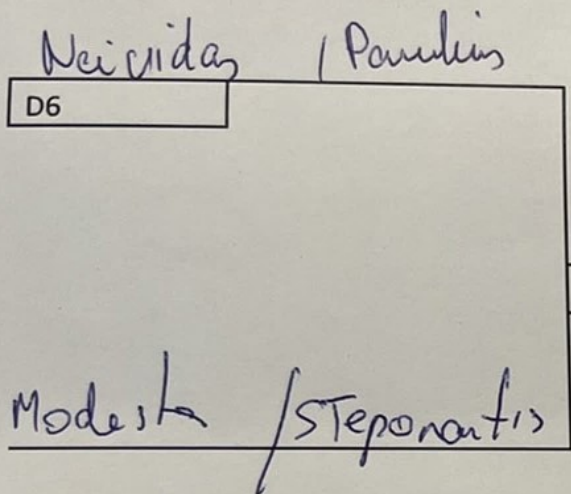 Neividas / Paulius
D6
Modesta / STeponantis